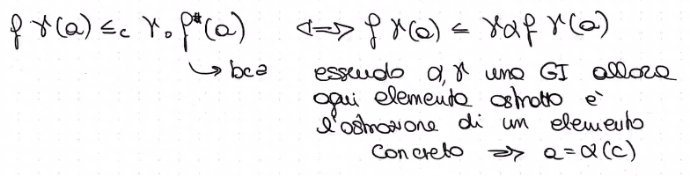 f γ(a) ≤c γ∘f#(a) <=> f γ(a) ≤ γαf γ(a)
↳ bca
essendo α,γ una GI allora
ogni elemento astratto è
l'astrazione di un elemento
concreto => a=α(c)